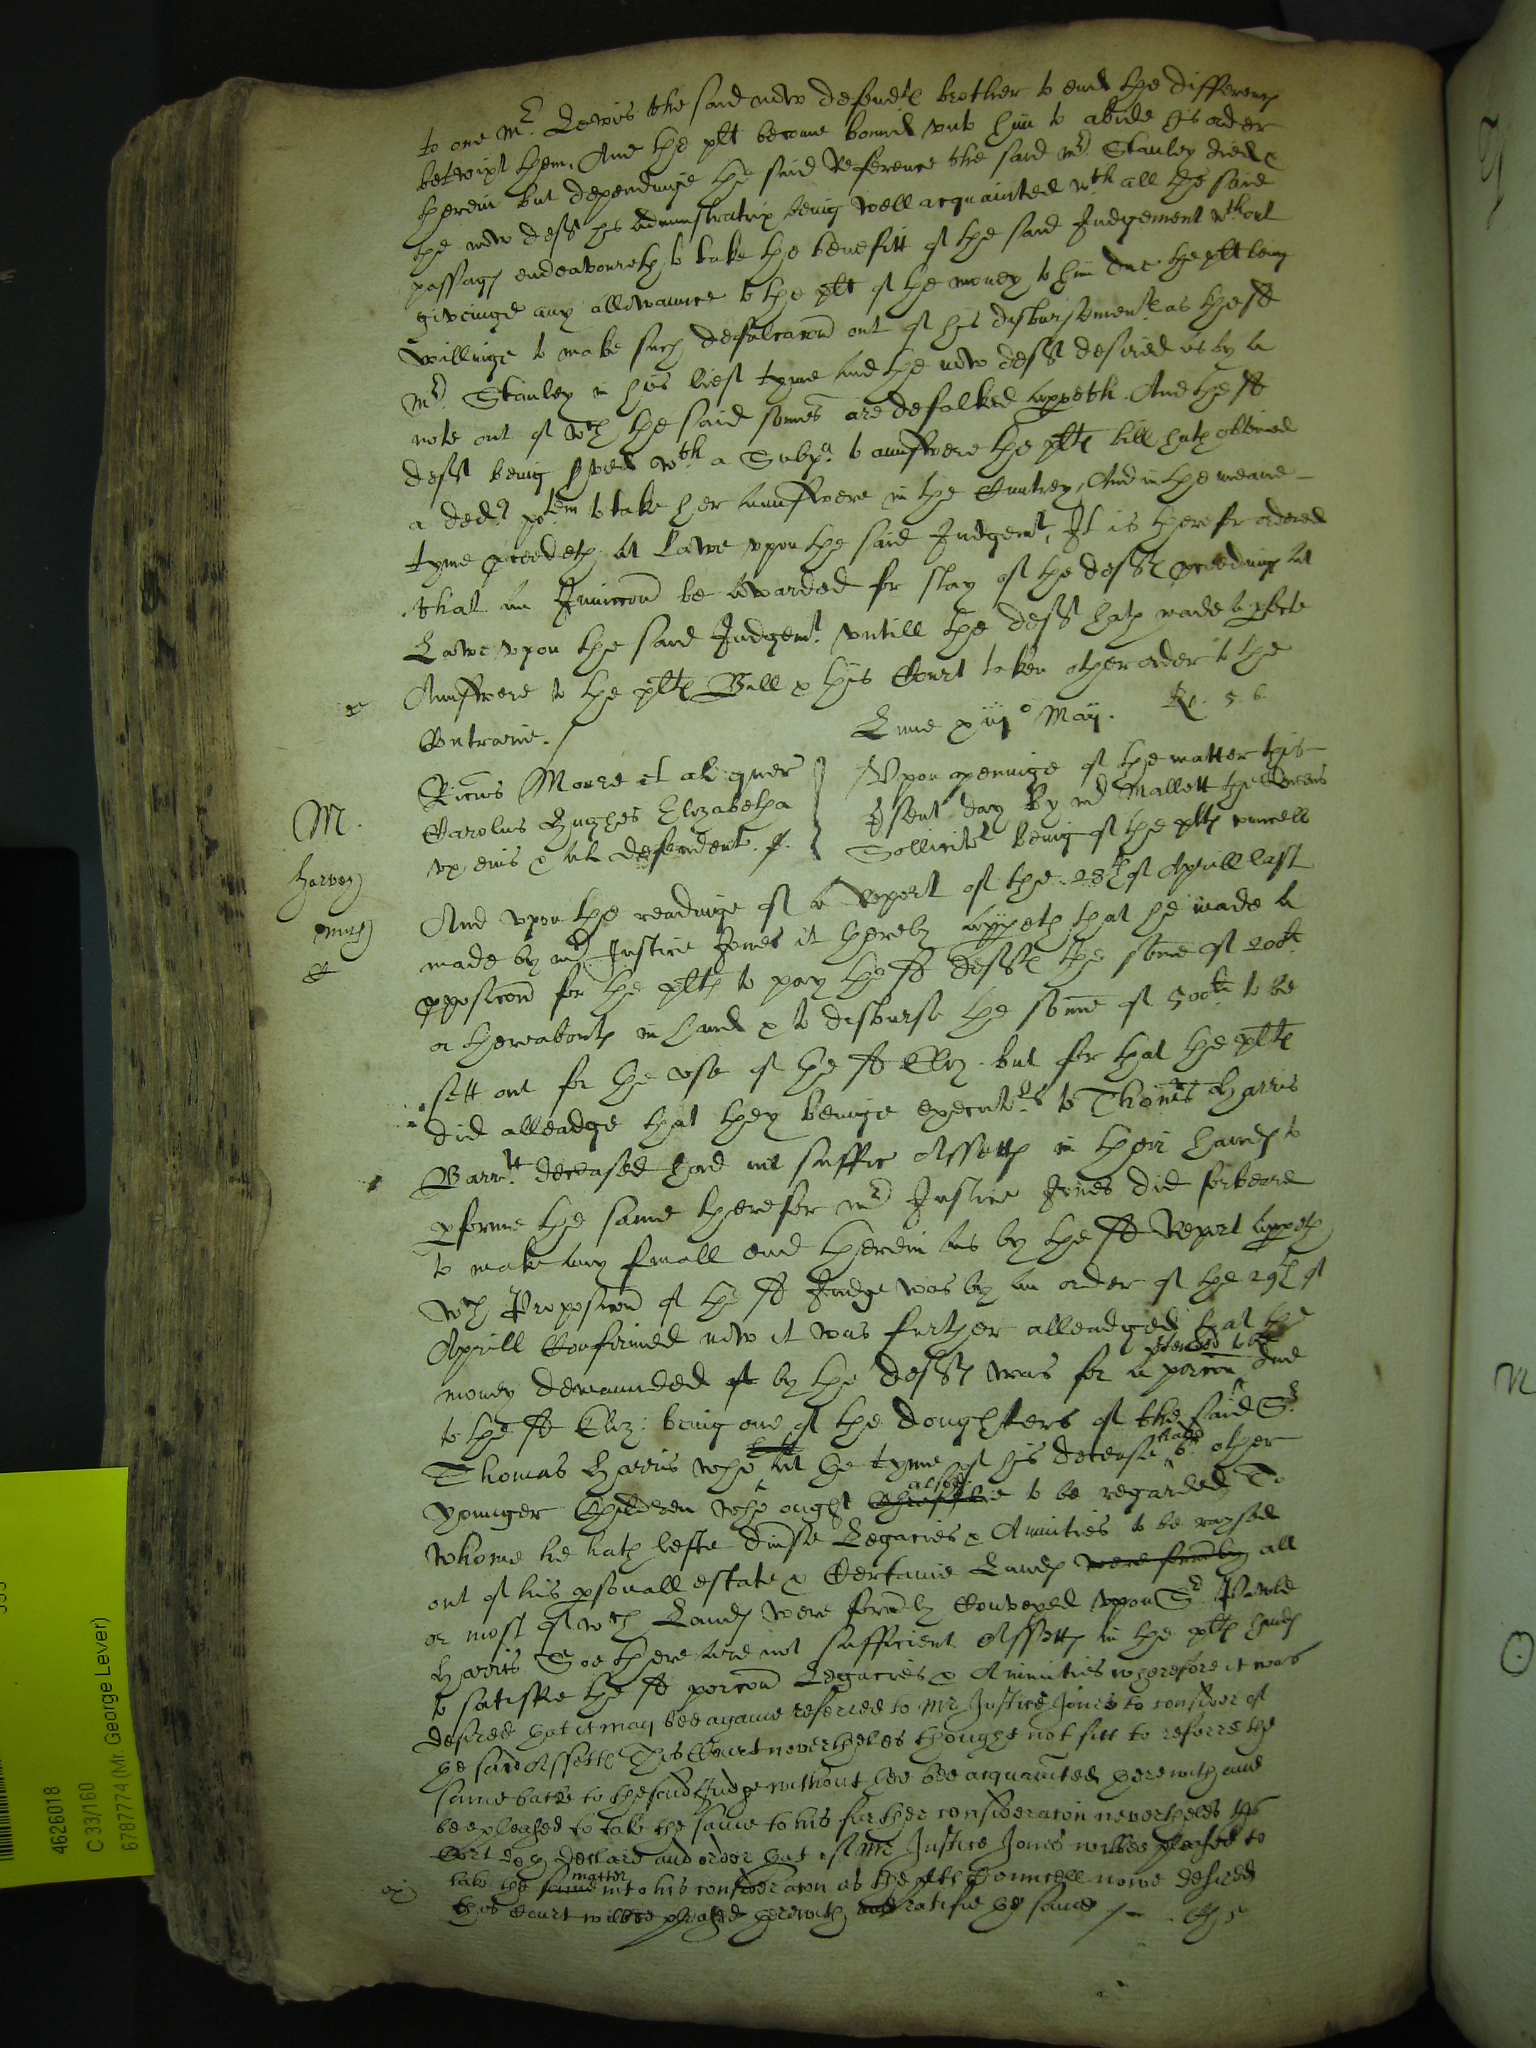 to one Mr. Lewis the said now defendtes brother to end the differences
betwixt them, And the plt became bound unto him to abide his order
herein but dependinge the said Reference the said Mr. Stanley died &
the now deft his administratrix being well acquainted wth all the said
passages endeavoureth to take the benefitt of the said Judgement wthout
giveinge any allowaunce to the plt of the money to him due the plt being
willinge to make such defalcacon out of his disbursementes as the sd
Mr. Stanley in his lief tyme and the now deft desired as by a
note out of wch the said somes are defalked appeth. And the sd
deft being served wth a Subpa. to aunswere the pltes bill hath obteined
a ded. potem to take her aunswere in the Cuntrey, And in the meane
tyme proceedeth at Lawe upon the said Judgemt, It is therefore ordered
that an Iniunccon be awarded for stay of the deftes proceedinges at
Lawe upon the said Judgemt. untill the deft hath made a pfecte
Aunswere to the pltes Bill & this Court taken other order to the
Contrarie.
Lune xiij° Maij.
Ricus Moore et al quer
Carolus Hughes Elizabetha
ux eius & al defendent.
M.
Harvey
Upon openinge of the matter this
psent day by Mr Mallett the Queens
Sollicitor being of the pltes councell
And upon the readinge of a Report of the 28th of Aprill last
made by Mr Justice Jones it thereby appeth that he made a
pposicon for the pltes to pay the sd deftes the some of 200li
or thereaboutes in hand & to disburse the some of 500li to be
sett out for the use of the sd Eliz. but for that the pltes
did alleadge that they beinge executors to Thomas Harris
Barrtt. deceased had not suffic Assettes in their handes to
pforme the same therefore Mr Justice Jones did forbeare
to make any finall end therein as by the sd Report appeth
wch Proposicon of the sd Judge was by an order of the 29th of
Aprill Confirmed now it was further alleadged that the
money demaunded by the deftes was for a porcon ptended to be due
to the sd Eliz: being one of the doughters of the said Sr
Thomas Harris who at the tyme of his decease had 6 other
younger Children who ought also to be regarded To
whome he hath lefte divse Legacies & Anuities to be raysed
out of his psonall estate & Certaine Landes were formly all
or most of wch Landes were formly Conveyed upon Sr Pawle
Harris Soe there are not sufficient Assettes in the pltes handes
to satisfie the sd porcon Legacies & Anuities wherefore it was
desired that it may bee againe referred to Mr Justice Jones to consider of
the said Assettes This Court neverthelesse thought not fitt to referre the
same backe to the said Judge without hee bee acquainted herewith and
bee pleased to take the same to his further consideracon neverthelesse this
Cort doth declare and order that if Mr Justice Jones wilbee pleased to
take the same matter into his consideracon as the pltes Councell nowe desired
this Court wilbee pleased herewith and ratifie the same
4626018
C 33/160
6787774 (Mr George Lever)